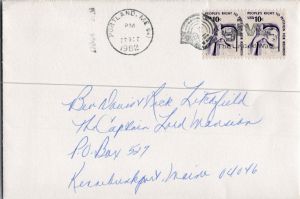 PORTLAND, ME
PM
1982
PEOPLE'S RIGHT
10c
PEOPLE'S RIGHT
10c
Bev Davis & Rick Litchfield
The Captain Lord Mansion
P.O. Box 527
Kennebunkport, Maine 04046